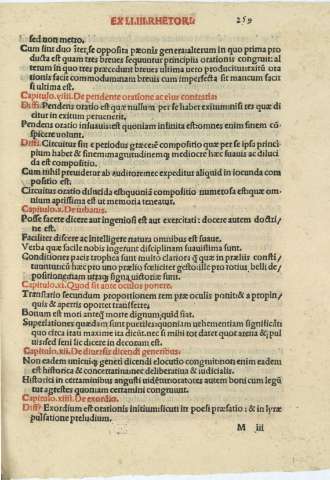 EX LI.III.RHETORI. 259
sed non metro.
Cum sint duo
prima est quam tres breues sequuntur principiis orationis congruit: al
terum in quo tres præcedunt breues ultima uero
tionis facit commodum nam breuis cum imperfecta sit mancum facit
si ultima est.
Capitulo.viiii.De pendente oratione ac eius contestatiõe
Diffi. Pendens oratio est quæ nullum per se habet exitum nisi res quæ di
citur in exitum peruenerit,
Pendens oratio insuauis est quoniam infinita est omnes enim finem cõ
spicere volunt.
Diffi. Circuitus siue periodus græce est compositio quæ per se ipsa princi
pium habet & finem magnitudinemq; mediocrē hæc suauis ac diluci
da est compositio.
Cum nihil ab auditore nec expeditur aliquid in iocunda com
positio est.
Circuitus oratio dilucida est quoniã compositio numerosa est quæ om‐
nium aptissima est ut memoria teneatur.
Capitulo.x.De urbanis.
Posse facete dicere aut ingeniosi est aut exercitati: docere autem doctri/
næ est.
Faciliter discere ac intelligere natura omnibus est suaue.
Verba quæ facile nobis ingerunt disciplinam suauissima sunt.
Conditiones pacis trophea sunt multo clariora q̃ quæ in præliis consti/
tuunt nã hæc pro uno prælio fœliciter gesto illæ pro totius belli de/
positione tam utraq; signa uictoriæ sunt.
Capitulo.xi.Quod sit ante oculos ponere.
Translatio secundum proportionem rem præ oculis ponit & a propin/
quis & apertis oportet transferre,
Bonum est mori anteq̃ morte dignum quid fiat.
Superlationes quædam sunt pueriles quoniam uehementiam significãt
quo circa irati maxime ita dicũt. nec si mihi tot daret quot arena & pul
uis sed seni sic dicere indecorum est.
Capitulo.xii.De diuersis dicendi generibus.
Non eadem unicuiq; generi dicendi elocutio congruit non enim eadem
est historica & concertatiua nec deliberatiua & iudicialis.
Historici in certaminibus angusti uidẽtur oratores autem boni cum legũ
tur agrestes quoniam certamini congruunt.
Capitulo.xiiii.De exordio.
Diffi. Exordium est orationis initium sicut in poesi præfatio: & in lyræ
pulsatione preludium.
M iii